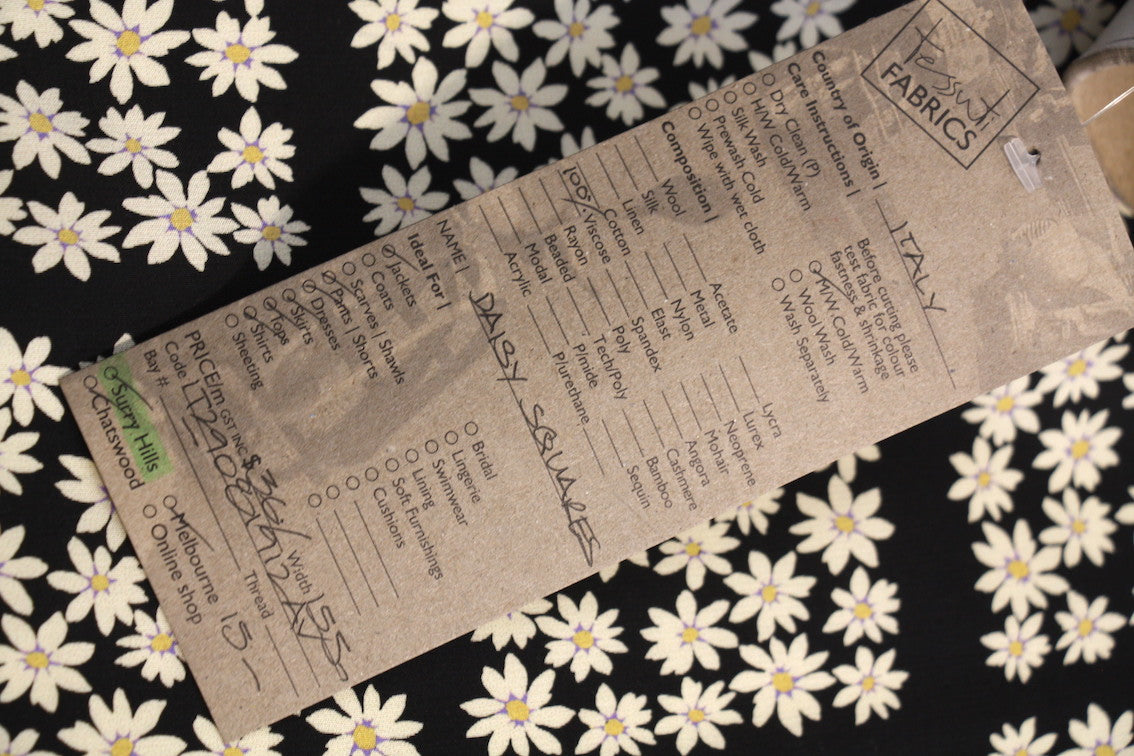 Tessuti
FABRICS
Country of Origin | ITALY
Care Instructions |
Dry Clean (P)
H/W Cold/Warm
Silk Wash
Prewash Cold
Wipe with wet cloth
Before cutting please
test fabric for colour
fastness & shrinkage
M/W Cold/Warm
Wool Wash
Wash Separately
Composition |
Wool
Silk
Linen
Cotton
100% Viscose
Rayon
Beaded
Modal
Acrylic
Acetate
Metal
Nylon
Elast
Spandex
Poly
Tech/Poly
P/mide
P/urethane
Lycra
Lurex
Neoprene
Mohair
Angora
Cashmere
Bamboo
Sequin
NAME | DAISY SQUARES
Ideal For |
Jackets
Coats
Scarves | Shawls
Pants | Shorts
Dresses
Skirts
Tops
Shirts
Sheeting
Bridal
Lingerie
Swimwear
Lining
Soft Furnishings
Cushions
PRICE/m GST INC $ Width 155
Code
Bay # Thread
Surry Hills
Chatswood
Melbourne 15-
Online shop